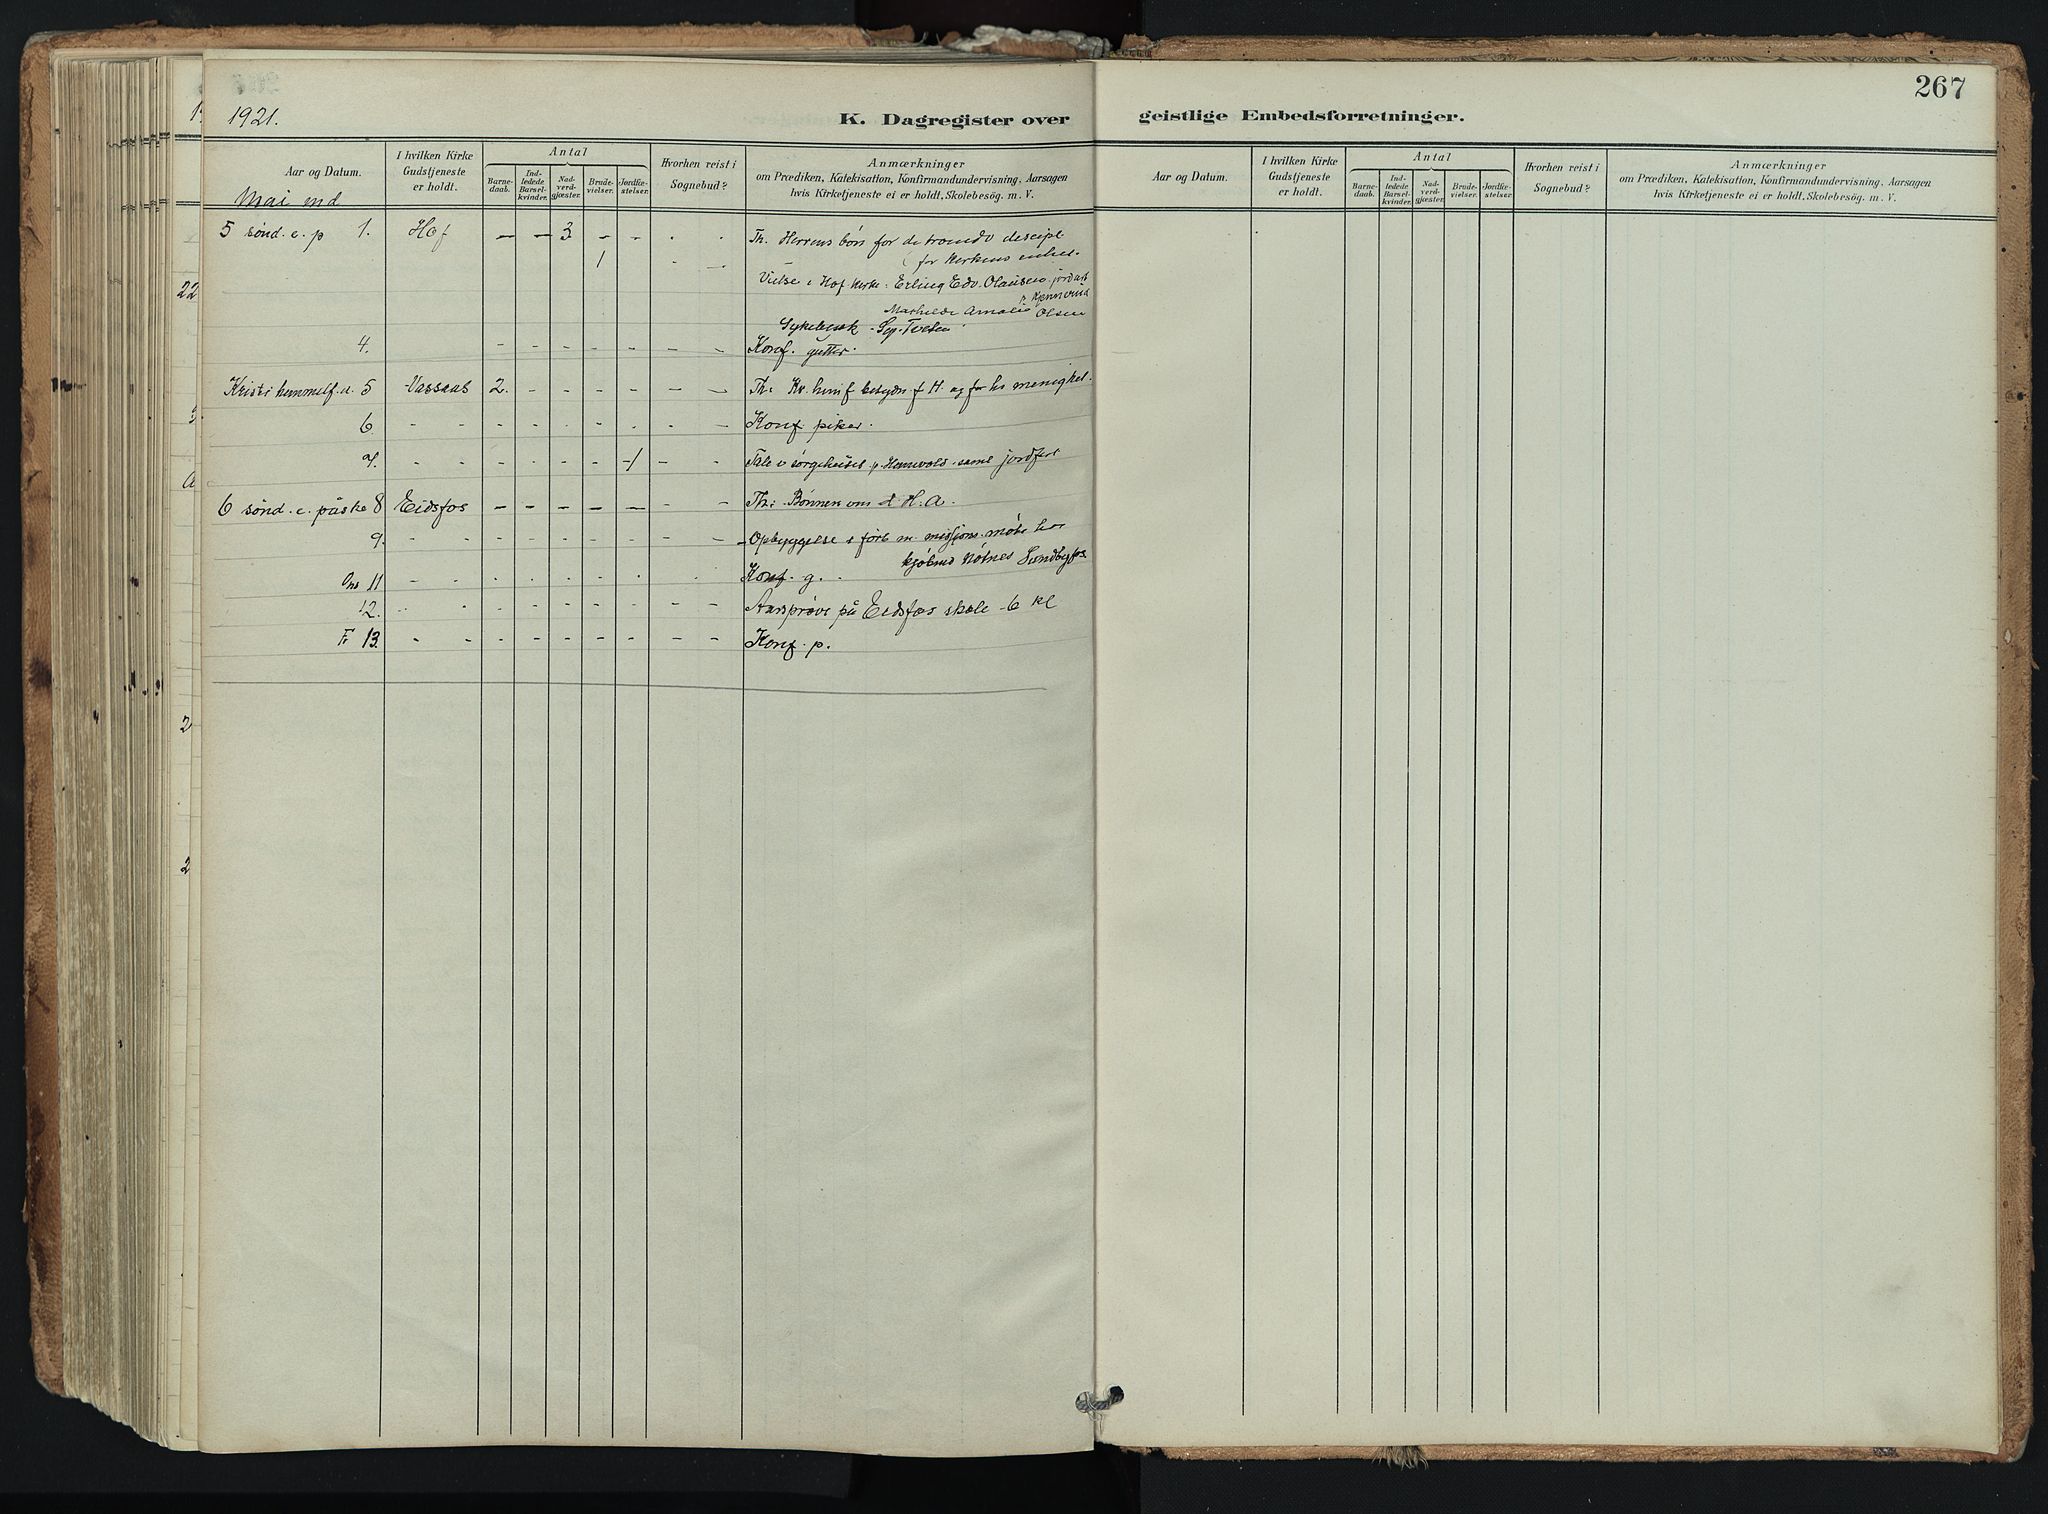 267
1921.
K. Dagregister over geistlige Embedsforretninger.
Aar og Datum.
I hvilken Kirke Gudstjeneste er holdt.
Antal
Barnedaab.
Indledede Barselkvinder.
Nadverdgjæster.
Brudevielser.
Jordfæstelser.
Hvorhen reist i Sognebud?
Anmærkninger
om Prædiken, Katekisation, Konfirmandundervisning, Aarsagen
hvis Kirketjeneste ei er holdt, Skolebesög. m. V.
Aar og Datum.
I hvilken Kirke Gudstjeneste er holdt.
Antal
Barnedaab.
Indledede Barselkvinder.
Nadverdgjæster.
Brudevielser.
Jordfæstelser.
Hvorhen reist i Sognebud?
Anmærkninger
om Prædiken, Katekisation, Konfirmandundervisning, Aarsagen
hvis Kirketjeneste ei er holdt, Skolebesög. m. V.
Mai md
5 sønd. e. p 1. Hof — — 3 - - . . Th. Herrens bøn for de
1 . — for kirkens
Vielse i Hof kirke: Erling Edv. Olausen
Mathilde Amalie Olsen
4. - - - - - - - Konf. gutter.
Kristi himmelf. d. 5 Vassaas 2. - - - - - - Th: Kr. himf betydn f H. og for hs menighet.
6. - - - - - - - - - Konf piker.
7. - - - - - - -1 - - Tale i sørgehuset p. samt jordfest
6 sønd. e. påske 8 Eidsfos — — — — — - - Th: Bønnen om d. H. A.
9. - - - - - - - - - Opbyggelse i forb m. missions-møte hos
Sundbyfos
Ons 11 - - - - - - - . . Konf. g.
12. - - - - - - - - - Aarsprøve på Eidsfos skole - 6 kl
Fr 13. - - - - - - - - - Konf. p.
22
2
2